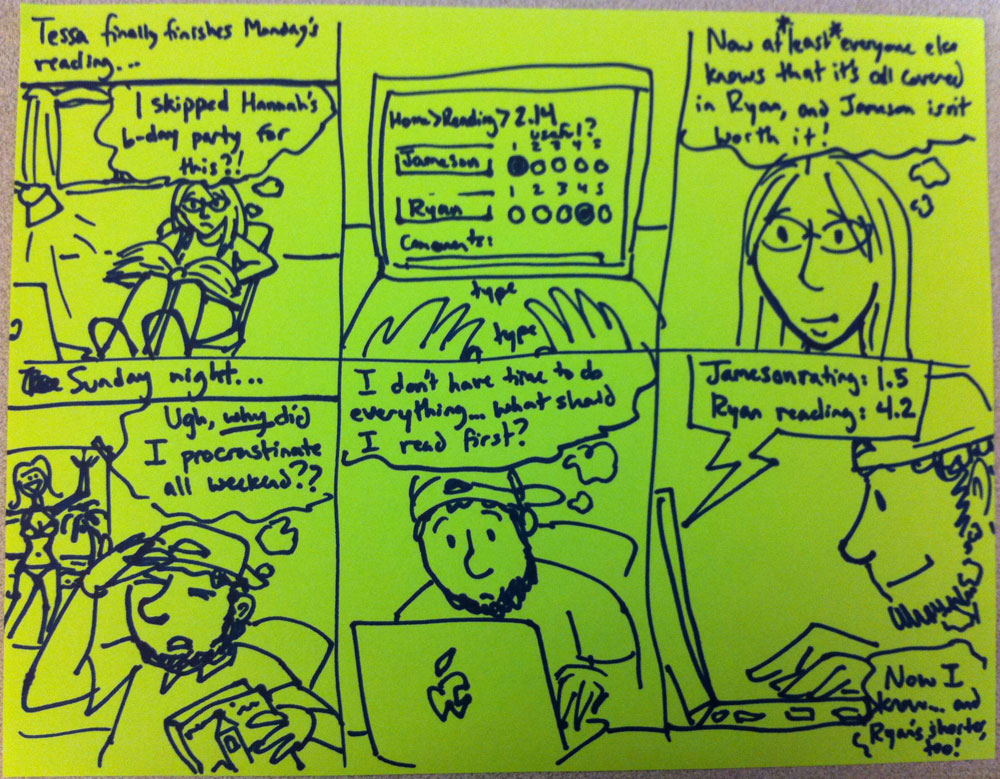 Tessa finally finishes Monday's
reading...
I skipped Hannah's
b-day party for
this?!
Home>Reading> 2.14
useful?
1 2 3 4 5
Jameson
1 2 3 4 5
Ryan
Comments:
type
type
Now at *least* everyone else
knows that it's all covered
in Ryan, and Jameson isn't
worth it!
Sunday night...
Ugh, why did
I procrastinate
all weekend??
I don't have time to do
everything... what should
I read first?
Jameson rating: 1.5
Ryan reading: 4.2
Now I
know... and
Ryan's shorter,
too!